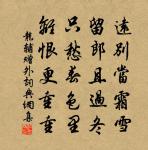 遠別當霜雪
留郎且過冬
只愁春色里
離恨更重重
龍輔贈外詞典網